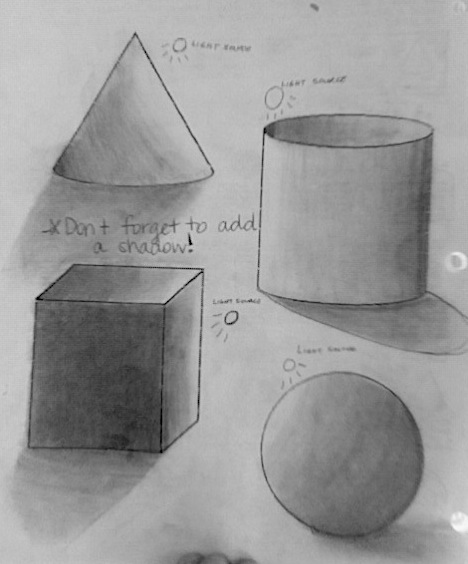 LIGHT SOURCE
LIGHT SOURCE
*Don't forget to add
a shadow!
LIGHT SOURCE
LIGHT SOURCE